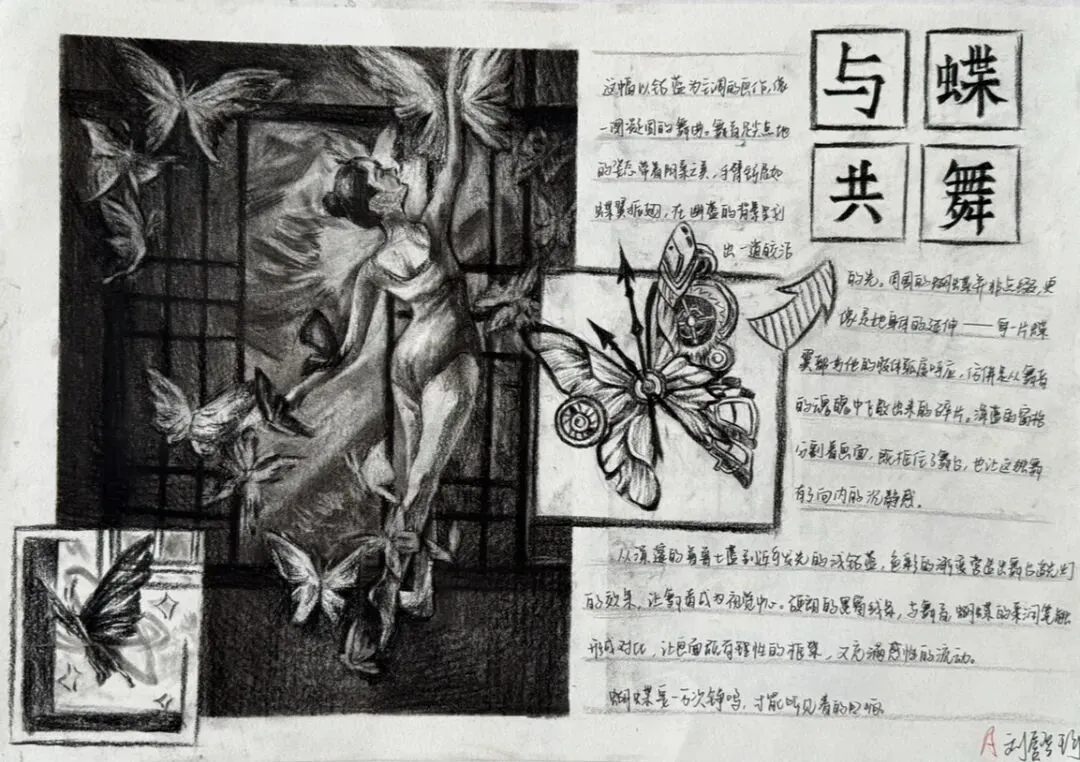 与蝶
共舞
这幅以钴蓝为主调的画作,像
一阕凝固的舞曲。舞者足尖点地
的姿态带着阴柔之美,手臂舒展如
蝶翼振翅,在幽蓝的背景里划
出一道皎洁
的光。周围的蝴蝶并非点缀,更
像是她身体的延伸——每一片蝶
翼都与他的肢体弧度呼应,仿佛是从舞者
的魂魄中飞散出来的碎片。深蓝的窗格
分割着画面,既框住了舞台,也让这独舞
有了向内的沉静感。
从深邃的普鲁士蓝到近乎发光的浅钴蓝,色彩的渐变营造出舞台追光灯
的效果,让舞者成为视觉中心。硬朗的黑色线条,与舞者、蝴蝶的柔润笔触
形成对比,让画面既有理性的框架,又充满感性的流动。
蝴蝶要一万次,才能听见春的回响
A 刘